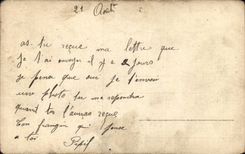 21 Août
as tu reçue ma lettre que
je t'ai envoyer il y a 2 jours
je pense que oui je t'envoie
une photo tu me repondra
quant tu l'auras reçue
Ton frangin qui pense
a toi